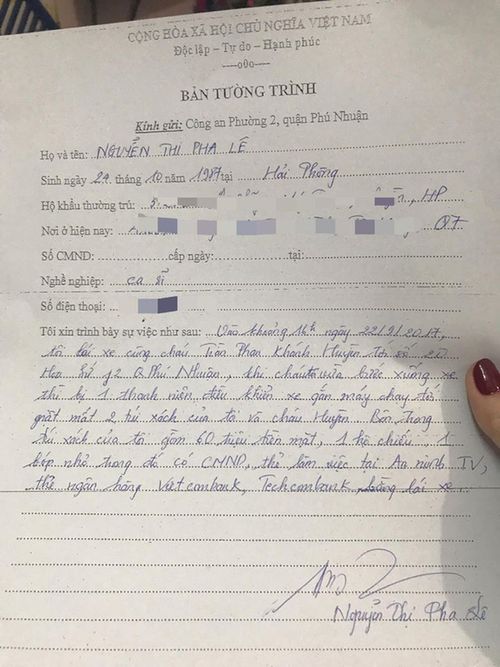 CỘNG HÒA XÃ HỘI CHỦ NGHĨA VIỆT NAM
Độc lập – Tự do – Hạnh phúc
----o0o----
BẢN TƯỜNG TRÌNH
Kính gửi: Công an Phường 2, quận Phú Nhuận
Họ và tên: NGUYỄN THỊ PHA LÊ
Sinh ngày 29 tháng 10 năm 1987 tại Hải Phòng
Hộ khẩu thường trú: HP
Nơi ở hiện nay: Q7
Số CMND: cấp ngày: tại:
Nghề nghiệp: ca sĩ
Số điện thoại:
Tôi xin trình bày sự việc như sau: Vào khoảng 16h ngày 22/9/2017,
tôi lái xe cùng cháu Trần Phan Khánh Huyền tới số 20
Hoa Sứ f2 Q Phú Nhuận, khi cháu vừa bước xuống xe
thì bị 1 thanh niên điều khiển xe gắn máy chạy tới
giật mất 2 túi xách của tôi và cháu Huyền. Bên trong
túi xách của tôi gồm 60 triệu tiền mặt, 1 hộ chiếu, 1
bóp nhỏ trong đó có CMND, thẻ làm việc tại An ninh TV,
thẻ ngân hàng Vietcombank, Techcombank, bằng lái xe
Nguyễn Thị Pha Lê